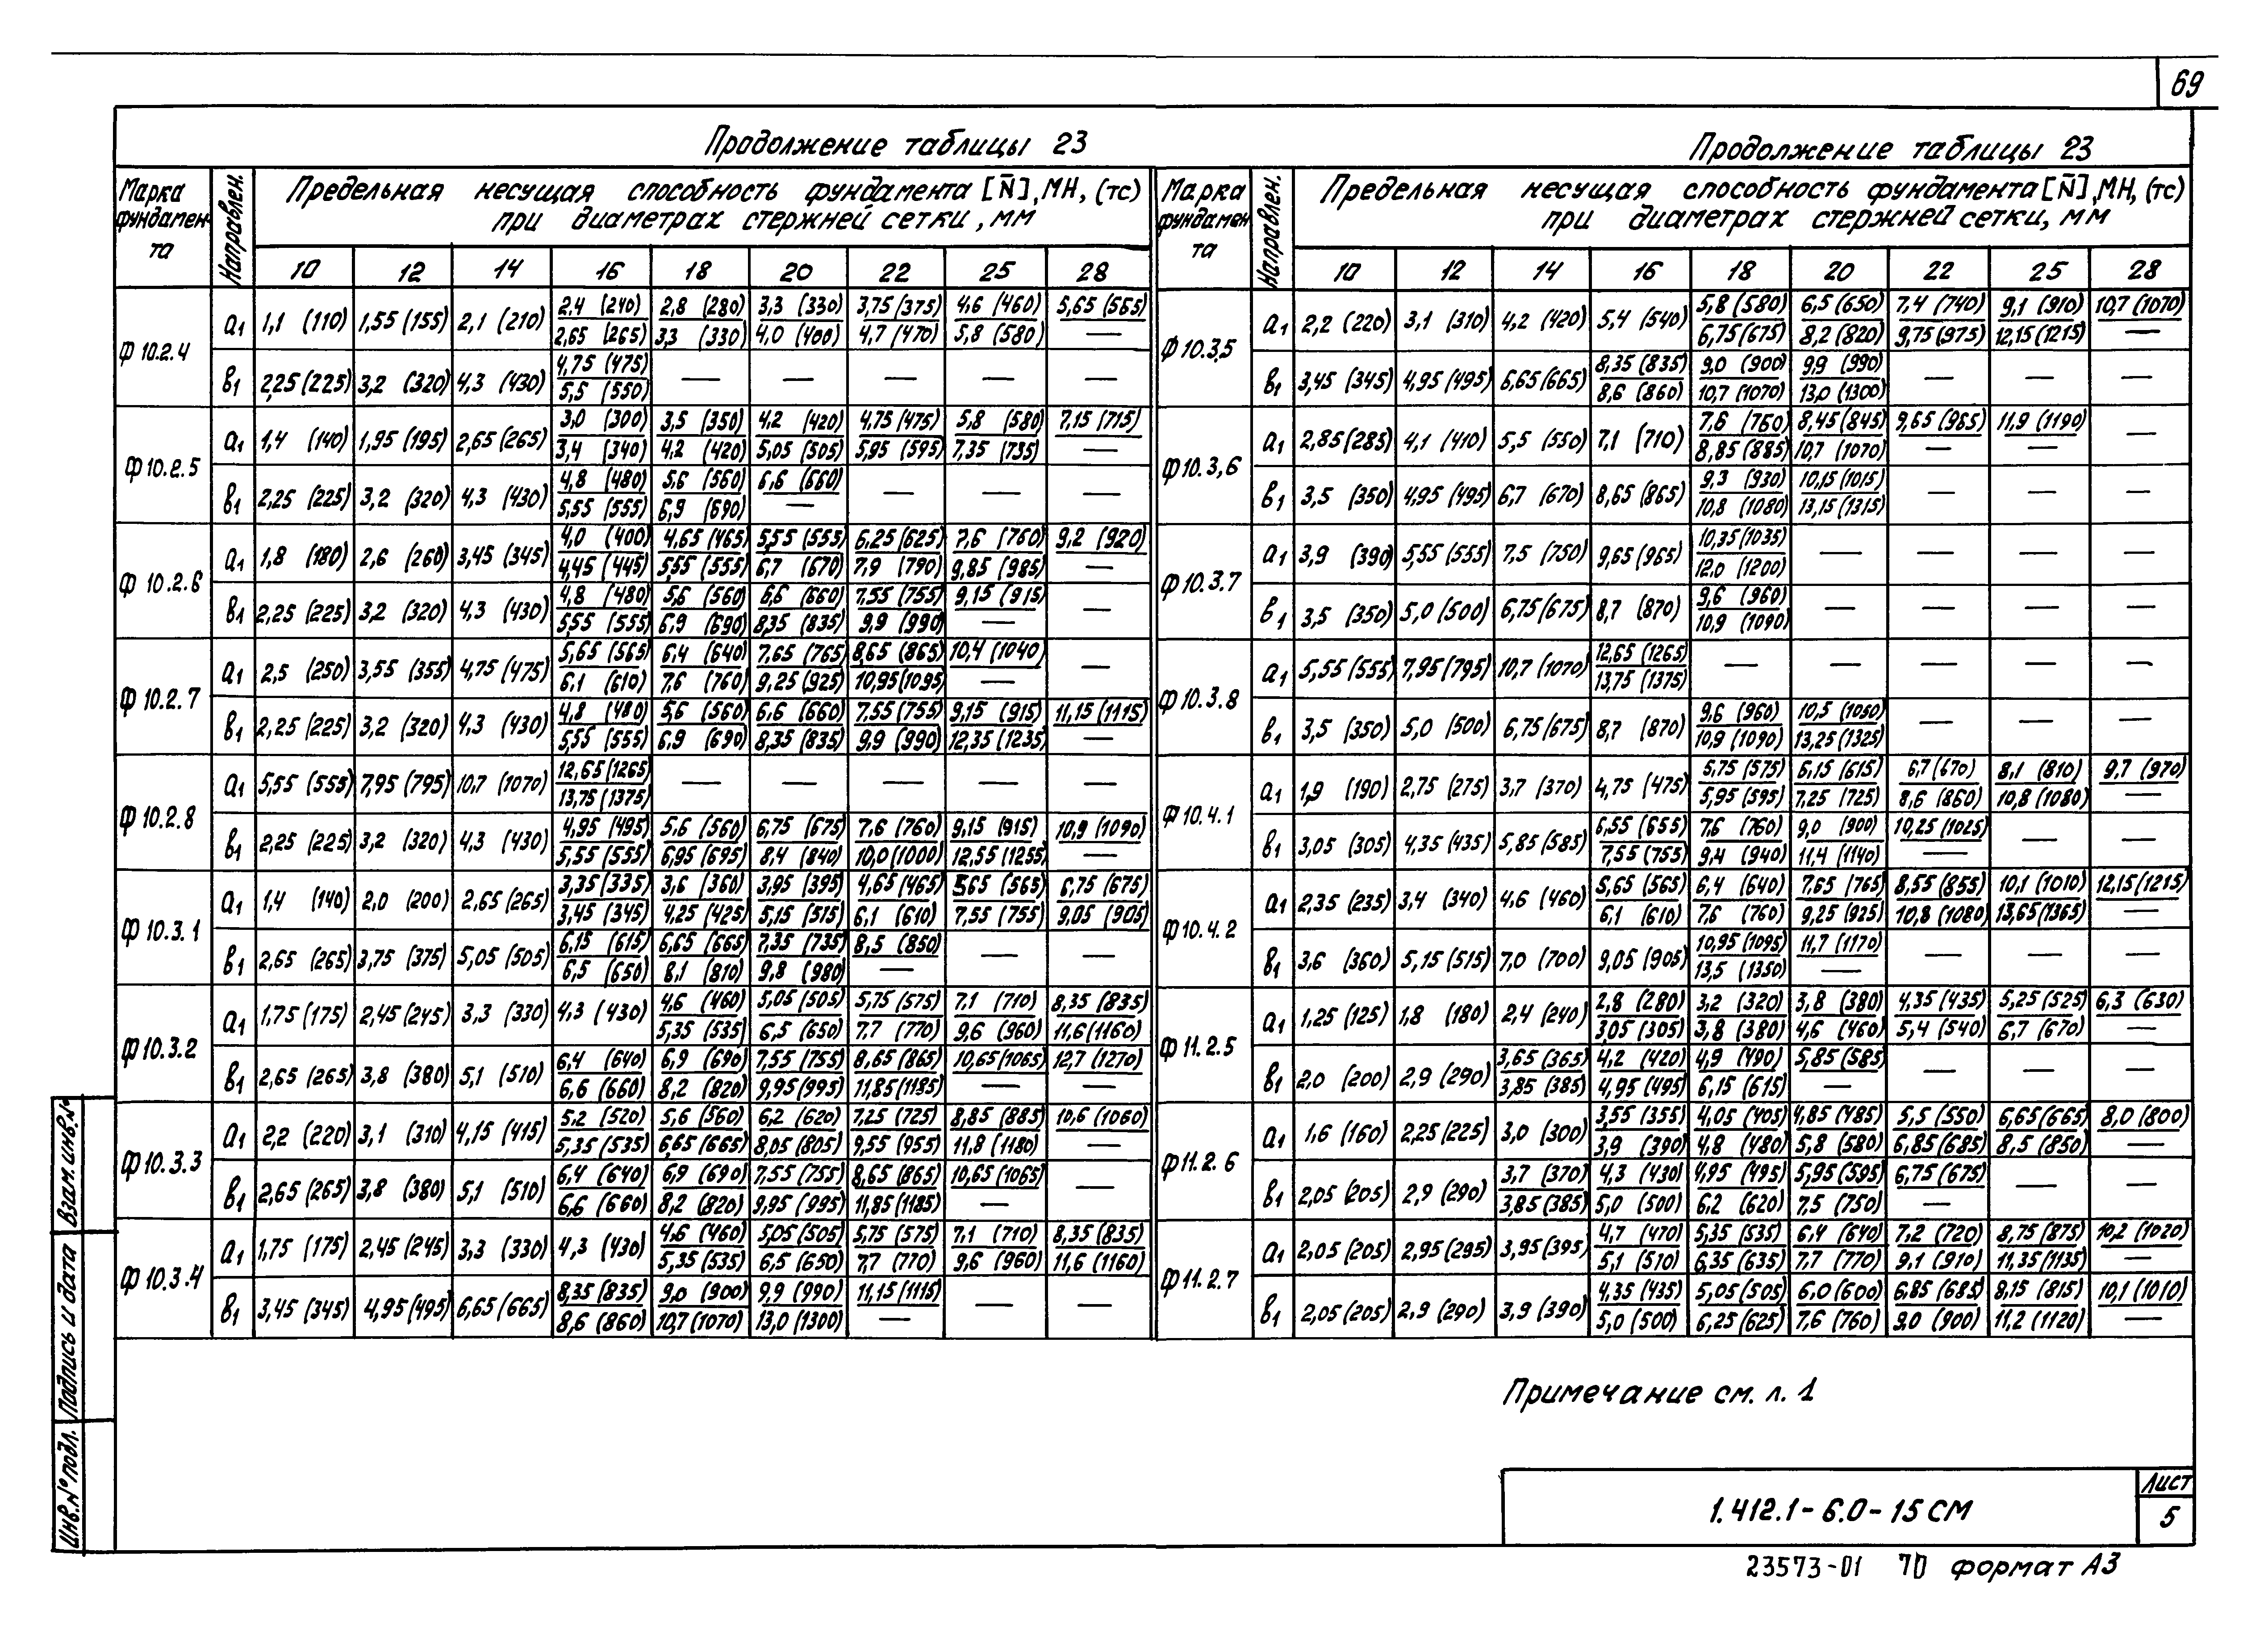 69
Продолжение таблицы 23
Марка фундамента Направлен. Предельная несущая способность фундамента [N̄], МН, (тс) при диаметрах стержней сетки, мм
10 12 14 16 18 20 22 25 28
Ф 10.2.4
а1 1,1 (110) 1,55 (155) 2,1 (210) 2,4 (240) 2,8 (280) 3,3 (330) 3,75 (375) 4,6 (460) 5,65 (565)
2,65 (265) 3,3 (330) 4,0 (400) 4,7 (470) 5,8 (580) —
в1 2,25 (225) 3,2 (320) 4,3 (430) 4,75 (475) — — — — —
5,5 (550)
Ф 10.2.5
а1 1,4 (140) 1,95 (195) 2,65 (265) 3,0 (300) 3,5 (350) 4,2 (420) 4,75 (475) 5,8 (580) 7,15 (715)
3,4 (340) 4,2 (420) 5,05 (505) 5,95 (595) 7,35 (735) —
в1 2,25 (225) 3,2 (320) 4,3 (430) 4,8 (480) 5,6 (560) 6,6 (660) — — —
5,55 (555) 6,9 (690) —
Ф 10.2.6
а1 1,8 (180) 2,6 (260) 3,45 (345) 4,0 (400) 4,65 (465) 5,55 (555) 6,25 (625) 7,6 (760) 9,2 (920)
4,45 (445) 5,55 (555) 6,7 (670) 7,9 (790) 9,85 (985) —
в1 2,25 (225) 3,2 (320) 4,3 (430) 4,8 (480) 5,6 (560) 6,6 (660) 7,55 (755) 9,15 (915) —
5,55 (555) 6,9 (690) 8,35 (835) 9,9 (990) —
Ф 10.2.7
а1 2,5 (250) 3,55 (355) 4,75 (475) 5,65 (565) 6,4 (640) 7,65 (765) 8,65 (865) 10,4 (1040) —
6,1 (610) 7,6 (760) 9,25 (925) 10,95 (1095) —
в1 2,25 (225) 3,2 (320) 4,3 (430) 4,8 (480) 5,6 (560) 6,6 (660) 7,55 (755) 9,15 (915) 11,15 (1115)
5,55 (555) 6,9 (690) 8,35 (835) 9,9 (990) 12,35 (1235) —
Ф 10.2.8
а1 5,55 (555) 7,95 (795) 10,7 (1070) 12,65 (1265) — — — — —
13,75 (1375)
в1 2,25 (225) 3,2 (320) 4,3 (430) 4,95 (495) 5,6 (560) 6,75 (675) 7,6 (760) 9,15 (915) 10,9 (1090)
5,55 (555) 6,95 (695) 8,4 (840) 10,0 (1000) 12,55 (1255) —
Ф 10.3.1
а1 1,4 (140) 2,0 (200) 2,65 (265) 3,35 (335) 3,6 (360) 3,95 (395) 4,65 (465) 5,65 (565) 6,75 (675)
3,45 (345) 4,25 (425) 5,15 (515) 6,1 (610) 7,55 (755) 9,05 (905)
в1 2,65 (265) 3,75 (375) 5,05 (505) 6,15 (615) 6,65 (665) 7,35 (735) 8,5 (850) — —
6,5 (650) 8,1 (810) 9,8 (980) —
Ф 10.3.2
а1 1,75 (175) 2,45 (245) 3,3 (330) 4,3 (430) 4,6 (460) 5,05 (505) 5,75 (575) 7,1 (710) 8,35 (835)
5,35 (535) 6,5 (650) 7,7 (770) 9,6 (960) 11,6 (1160)
в1 2,65 (265) 3,8 (380) 5,1 (510) 6,4 (640) 6,9 (690) 7,55 (755) 8,65 (865) 10,65 (1065) 12,7 (1270)
6,6 (660) 8,2 (820) 9,95 (995) 11,85 (1185) — —
Ф 10.3.3
а1 2,2 (220) 3,1 (310) 4,15 (415) 5,2 (520) 5,6 (560) 6,2 (620) 7,25 (725) 8,85 (885) 10,6 (1060)
5,35 (535) 6,65 (665) 8,05 (805) 9,55 (955) 11,8 (1180) —
в1 2,65 (265) 3,8 (380) 5,1 (510) 6,4 (640) 6,9 (690) 7,55 (755) 8,65 (865) 10,65 (1065) —
6,6 (660) 8,2 (820) 9,95 (995) 11,85 (1185) —
Ф 10.3.4
а1 1,75 (175) 2,45 (245) 3,3 (330) 4,3 (430) 4,6 (460) 5,05 (505) 5,75 (575) 7,1 (710) 8,35 (835)
5,35 (535) 6,5 (650) 7,7 (770) 9,6 (960) 11,6 (1160)
в1 3,45 (345) 4,95 (495) 6,65 (665) 8,35 (835) 9,0 (900) 9,9 (990) 11,15 (1115) — —
8,6 (860) 10,7 (1070) 13,0 (1300) —
Продолжение таблицы 23
Марка фундамента Направлен. Предельная несущая способность фундамента [N̄], МН, (тс) при диаметрах стержней сетки, мм
10 12 14 16 18 20 22 25 28
Ф 10.3,5
а1 2,2 (220) 3,1 (310) 4,2 (420) 5,4 (540) 5,8 (580) 6,5 (650) 7,4 (740) 9,1 (910) 10,7 (1070)
6,75 (675) 8,2 (820) 9,75 (975) 12,15 (1215) —
в1 3,45 (345) 4,95 (495) 6,65 (665) 8,35 (835) 9,0 (900) 9,9 (990) — — —
8,6 (860) 10,7 (1070) 13,0 (1300)
Ф 10.3,6
а1 2,85 (285) 4,1 (410) 5,5 (550) 7,1 (710) 7,6 (760) 8,45 (845) 9,65 (965) 11,9 (1190) —
8,85 (885) 10,7 (1070) — —
в1 3,5 (350) 4,95 (495) 6,7 (670) 8,65 (865) 9,3 (930) 10,15 (1015) — — —
10,8 (1080) 13,15 (1315)
Ф 10.3.7
а1 3,9 (390) 5,55 (555) 7,5 (750) 9,65 (965) 10,35 (1035) — — — —
12,0 (1200)
в1 3,5 (350) 5,0 (500) 6,75 (675) 8,7 (870) 9,6 (960) — — — —
10,9 (1090)
Ф 10.3.8
а1 5,55 (555) 7,95 (795) 10,7 (1070) 12,65 (1265) — — — — —
13,75 (1375)
в1 3,5 (350) 5,0 (500) 6,75 (675) 8,7 (870) 9,6 (960) 10,5 (1050) — — —
10,9 (1090) 13,25 (1325)
Ф 10.4.1
а1 1,9 (190) 2,75 (275) 3,7 (370) 4,75 (475) 5,75 (575) 6,15 (615) 6,7 (670) 8,1 (810) 9,7 (970)
5,95 (595) 7,25 (725) 8,6 (860) 10,8 (1080) —
в1 3,05 (305) 4,35 (435) 5,85 (585) 6,55 (655) 7,6 (760) 9,0 (900) 10,25 (1025) — —
7,55 (755) 9,4 (940) 11,4 (1140) —
Ф 10.4.2
а1 2,35 (235) 3,4 (340) 4,6 (460) 5,65 (565) 6,4 (640) 7,65 (765) 8,55 (855) 10,1 (1010) 12,15 (1215)
6,1 (610) 7,6 (760) 9,25 (925) 10,8 (1080) 13,65 (1365) —
в1 3,6 (360) 5,15 (515) 7,0 (700) 9,05 (905) 10,95 (1095) 11,7 (1170) — — —
13,5 (1350) —
Ф 11.2.5
а1 1,25 (125) 1,8 (180) 2,4 (240) 2,8 (280) 3,2 (320) 3,8 (380) 4,35 (435) 5,25 (525) 6,3 (630)
3,05 (305) 3,8 (380) 4,6 (460) 5,4 (540) 6,7 (670) —
в1 2,0 (200) 2,9 (290) 3,65 (365) 4,2 (420) 4,9 (490) 5,85 (585) — — —
3,85 (385) 4,95 (495) 6,15 (615) —
Ф 11.2.6
а1 1,6 (160) 2,25 (225) 3,0 (300) 3,55 (355) 4,05 (405) 4,85 (485) 5,5 (550) 6,65 (665) 8,0 (800)
3,9 (390) 4,8 (480) 5,8 (580) 6,85 (685) 8,5 (850) —
в1 2,05 (205) 2,9 (290) 3,7 (370) 4,3 (430) 4,95 (495) 5,95 (595) 6,75 (675) — —
3,85 (385) 5,0 (500) 6,2 (620) 7,5 (750) —
Ф 11.2.7
а1 2,05 (205) 2,95 (295) 3,95 (395) 4,7 (470) 5,35 (535) 6,4 (640) 7,2 (720) 8,75 (875) 10,2 (1020)
5,1 (510) 6,35 (635) 7,7 (770) 9,1 (910) 11,35 (1135) —
в1 2,05 (205) 2,9 (290) 3,9 (390) 4,35 (435) 5,05 (505) 6,0 (600) 6,85 (685) 8,15 (815) 10,1 (1010)
5,0 (500) 6,25 (625) 7,6 (760) 9,0 (900) 11,2 (1120) —
Примечание см. л. 1
Взам. инв. №
Подпись и дата
Инв. № подл.
1.412.1 - 6.0 - 15 СМ
Лист
5
23573-01 70 формат А3